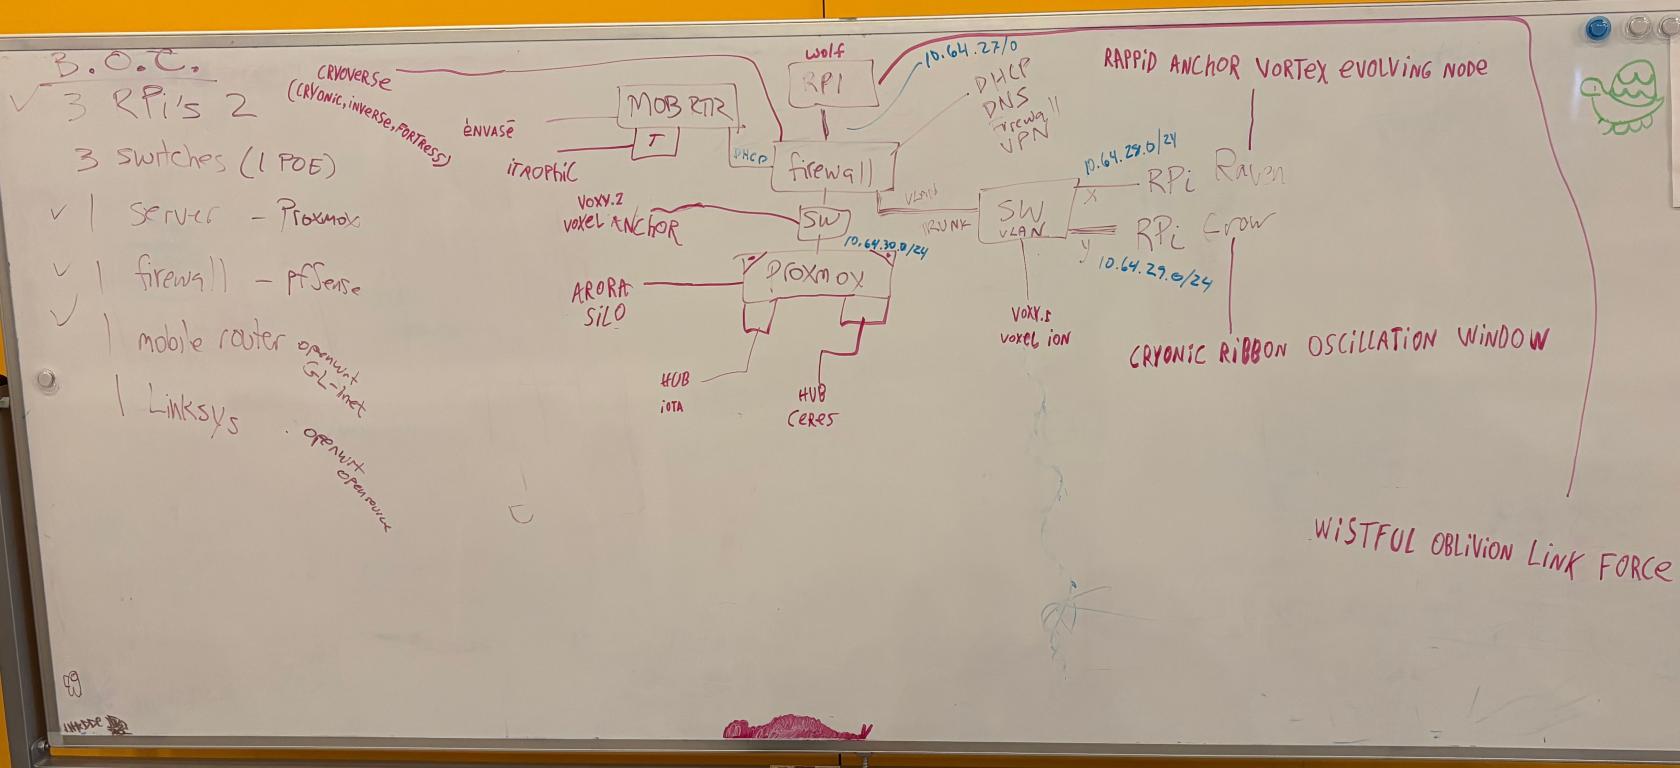 B.O.C.
3 RPi's 2
3 switches (1 POE)
1 server - Proxmox
1 firewall - pfSense
1 mobile router openwrt
GL-inet
1 Linksys . openwrt
opensource
CRYOVERSE
(CRYONIC, INVERSE, FORTRESS)
ENVASE
iTROPHiC
MOB RTR
T
DHCP
wolf
RPI
10.64.27/0
DHCP
DNS
firewall
VPN
firewall
VOXY.2
VOXEL ANCHOR
SW
10.64.30.0/24
Proxmox
ARORA
SiLO
HUB
iOTA
HUB
CERES
VLAN
TRUNK
SW
VLAN
VOXY.1
VOXEL iON
10.64.28.0/24
X
RPi Raven
y
RPi Crow
10.64.29.0/24
RAPPiD ANCHOR VORTEX EVOLVING NODE
CRYONiC RiBBON OSCiLLATION WiNDOW
WiSTFUL OBLiViON LiNK FORCE